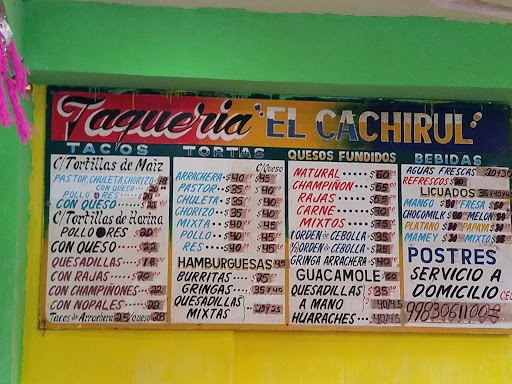 Taqueria "EL CACHIRUL"
TACOS
C/Tortillas de Maiz
PASTOR, CHULETA, CHORIZO
CON QUESO
POLLO RES
CON QUESO
C/Tortillas de Harina
POLLO RES 20
CON QUESO 22
QUESADILLAS 18
CON RAJAS 20
CON CHAMPIÑONES 22
CON NOPALES 20
Tacos de Arrachera 25/queso 28
TORTAS
C/Queso
ARRACHERA $40 45
PASTOR $35 40
CHULETA $35 40
CHORIZO $35 40
MIXTA $40 45
POLLO $40 45
RES $40 45
HAMBURGUESAS 45
BURRITAS 75
GRINGAS 35 y 45
QUESADILLAS
MIXTAS
QUESOS FUNDIDOS
NATURAL $60
CHAMPIÑON $65
RAJAS $65
CARNE $70
MIXTOS $75
1 ORDEN DE CEBOLLA $35
½ ORDEN DE CEBOLLA $35
GRINGA ARRACHERA $40
GUACAMOLE 50
QUESADILLAS $35
A MANO 40/45
HUARACHES 40/45
BEBIDAS
AGUAS FRESCAS 20 y 30
REFRESCOS
LICUADOS
MANGO $30 FRESA $30
CHOCOMILK $30 MELON
PLATANO $30 PAPAYA
MAMEY $30 MIXTOS
POSTRES
SERVICIO A
DOMICILIO